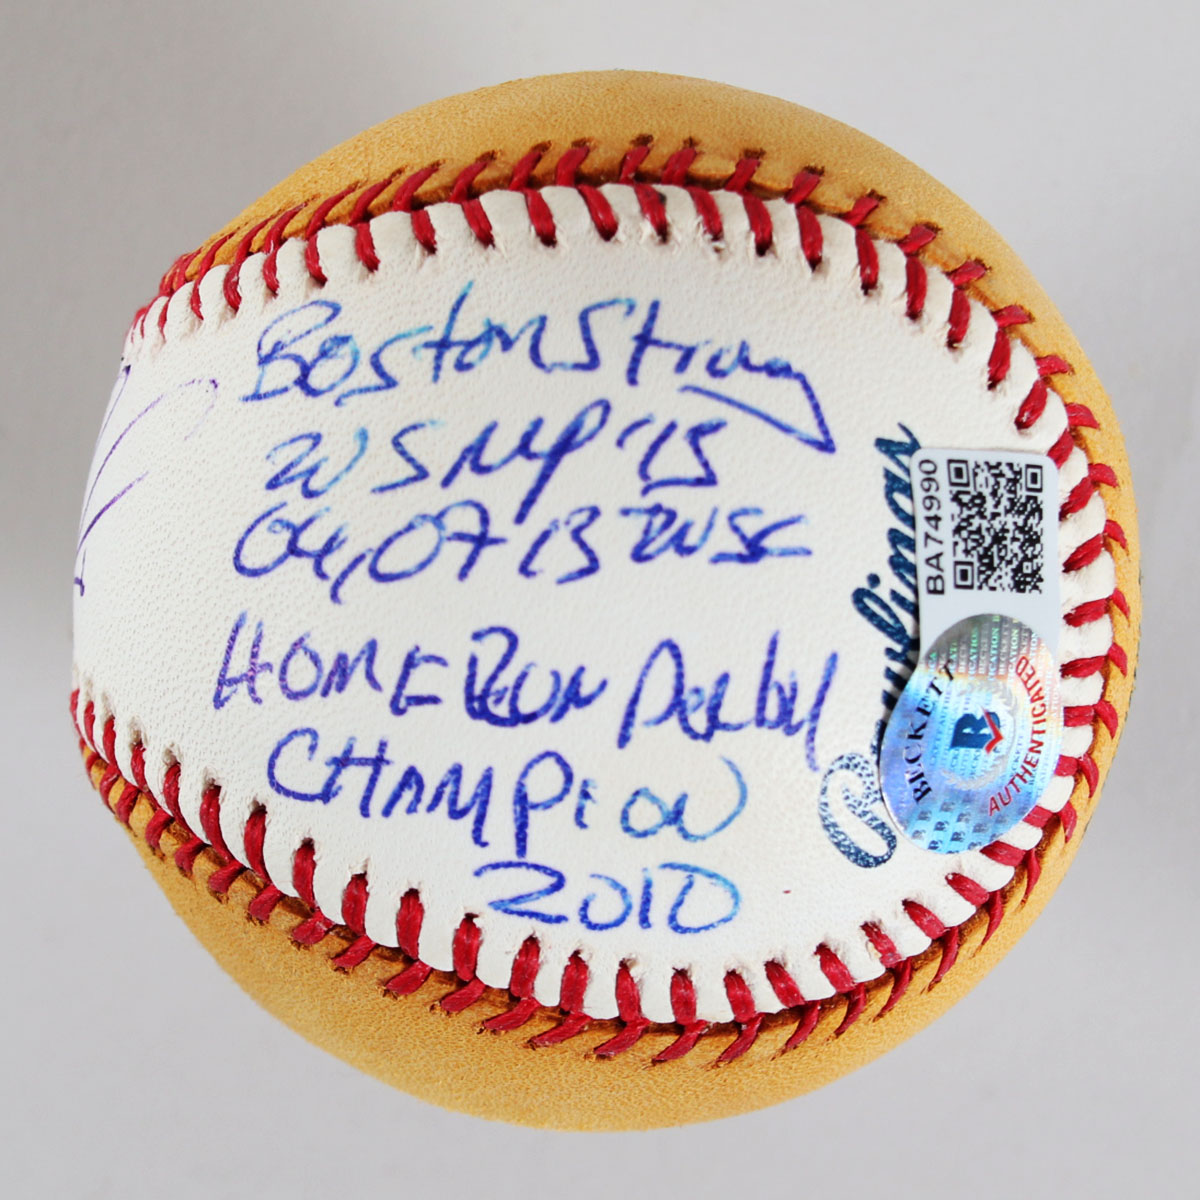 Boston Strong
WS MVP '13
04, 07 13 WSC
HOME RUN Derby
CHAMPION
2010
Rawlings
BA74990
BECKETT
AUTHENTICATED
B